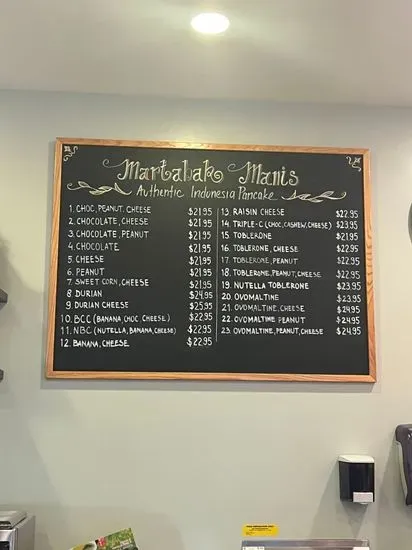 Martabak Manis
Authentic Indonesia Pancake
1. CHOC, PEANUT, CHEESE $21.95
2. CHOCOLATE, CHEESE $21.95
3. CHOCOLATE, PEANUT $21.95
4. CHOCOLATE $21.95
5. CHEESE $21.95
6. PEANUT $21.95
7. SWEET CORN, CHEESE $21.95
8. DURIAN $24.95
9. DURIAN CHEESE $25.95
10. BCC (BANANA, CHOC, CHEESE) $22.95
11. NBC (NUTELLA, BANANA, CHEESE) $22.95
12. BANANA, CHEESE $22.95
13. RAISIN CHEESE $22.95
14. TRIPLE-C (CHOC, CASHEW, CHEESE) $23.95
15. TOBLERONE $21.95
16. TOBLERONE, CHEESE $22.95
17. TOBLERONE, PEANUT $22.95
18. TOBLERONE, PEANUT, CHEESE $22.95
19. NUTELLA TOBLERONE $23.95
20. OVOMALTINE $23.95
21. OVOMALTINE, CHEESE $24.95
22. OVOMALTINE PEANUT $24.95
23. OVOMALTINE, PEANUT, CHEESE $24.95